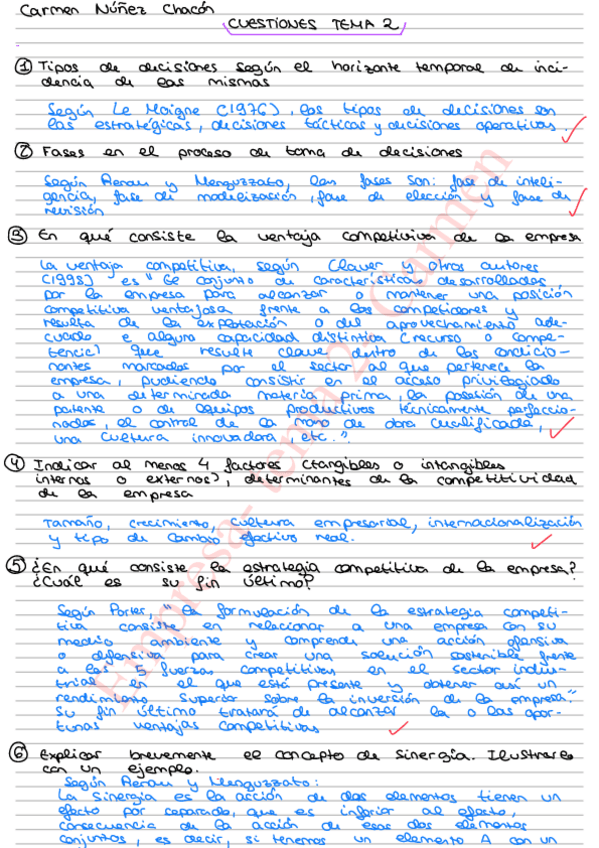 Carmen Núñez Chacón
CUESTIONES TEMA 2
① Tipos de decisiones según el horizonte temporal de inci-
dencia de las mismas
Según Le Moigne (1976), los tipos de decisiones son
las estratégicas, decisiones tácticas y decisiones operativas.
② Fases en el proceso de toma de decisiones
Según Renau y Menguzzato, las fases son: fase de inteli-
gencia, fase de modelización, fase de elección y fase de
revisión
③ En qué consiste la ventaja competitiva de la empresa
La ventaja competitiva, según Claver y otros autores
(1998) es "el conjunto de características desarrolladas
por la empresa para alcanzar o mantener una posición
competitiva ventajosa frente a los competidores y
resulta de la explotación o del aprovechamiento ade-
cuado e alguna capacidad distintiva (recurso o compe-
tencia) que resulte clave dentro de los condicio-
nantes marcados por el sector al que pertenece la
empresa, pudiendo consistir en el acceso privilegiado
a una determinada materia prima, la posesión de una
patente o de equipos productivos técnicamente perfeccio-
nados, el control de la mano de obra cualificada,
una cultura innovadora, etc.".
④ Indicar al menos 4 factores (tangibles o intangibles
internos o externos), determinantes de la competitividad
de la empresa
Tamaño, crecimiento, cultura empresarial, internacionalización
y tipo de cambio efectivo real.
⑤ ¿En qué consiste la estrategia competitiva de la empresa?
¿Cuál es su fin último?
Según Porter, "la formulación de la estrategia competi-
tiva consiste en relacionar a una empresa con su
medio ambiente y comprende una acción ofensiva
o defensiva para crear una solución sostenible frente
a las 5 fuerzas competitivas en el sector indus-
trial en el que está presente y obtener así un
rendimiento superior sobre la inversión de la empresa."
Su fin último tratará de alcanzar la o las opor-
tunas ventajas competitivas
⑥ Explicar brevemente el concepto de sinergía. Ilustrarlo
con un ejemplo.
Según Renau y Menguzzato:
La sinergia es la acción de dos elementos tienen un
efecto por separado, que es inferior al efecto,
consecuencia de la acción de esos dos elementos
conjuntos, es decir, si tenemos un elemento A con un
Empresa- tema 2- Carmen